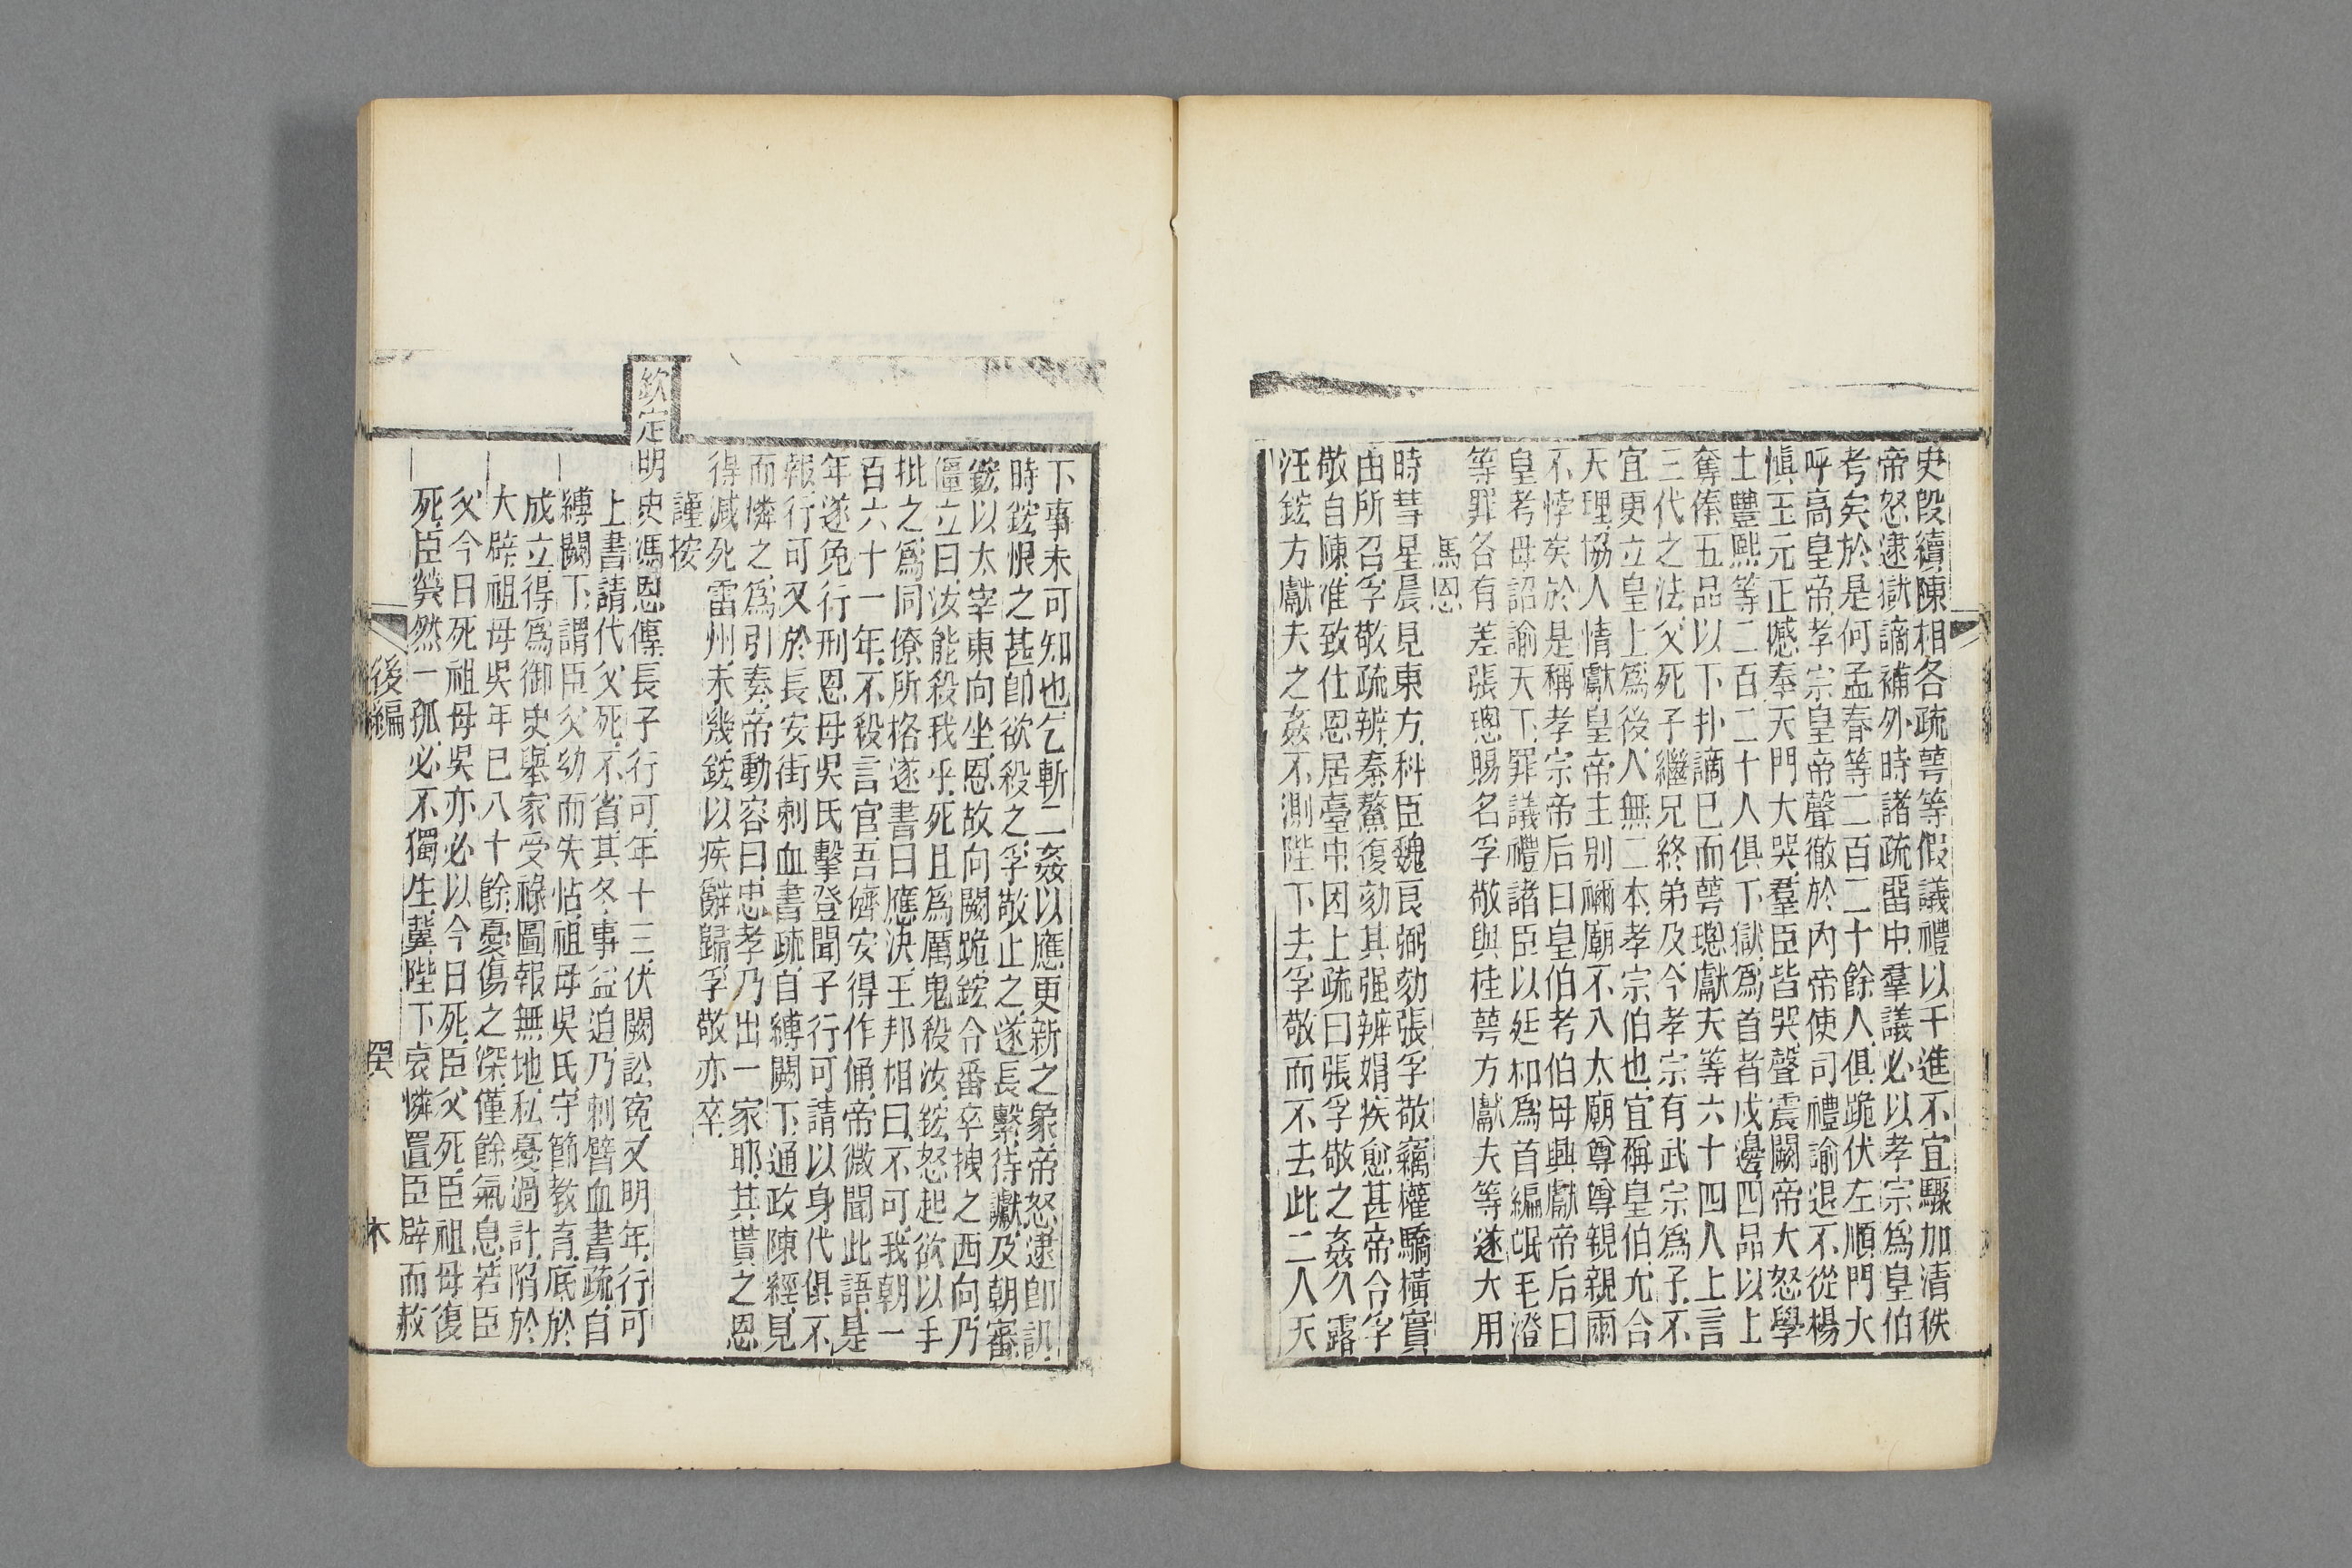 史段續陳相各疏萼等假議禮以干進不宜驟加清秩
帝怒逮獄謫補外時諸疏畱中羣議必以孝宗爲皇伯
考矣於是何孟春等二百二十餘人俱跪伏左順門大
呼高皇帝孝宗皇帝聲徹於內帝使司禮諭退不從楊
慎王元正撼奉天門大哭羣臣皆哭聲震闕帝大怒學
士豐熙等二百二十人俱下獄爲首者戍邊四品以上
奪俸五品以下扑謫已而萼璁獻夫等六十四人上言
三代之法父死子繼兄終弟及今孝宗有武宗爲子不
宜更立皇上爲後人無二本孝宗伯也宜稱皇伯允合
天理協人情獻皇帝主別禰廟不入太廟尊尊親親兩
不悖矣於是稱孝宗帝后曰皇伯考伯母興獻帝后曰
皇考母詔諭天下罪議禮諸臣以廷和爲首編氓毛澄
等罪各有差張璁賜名孚敬與桂萼方獻夫等遂大用
馮恩
時彗星晨見東方科臣魏良弼劾張孚敬竊權驕橫實
由所召孚敬疏辨秦鰲復劾其强辨娼疾愈甚帝合孚
敬自陳准致仕恩居臺中因上疏曰張孚敬之姦久露
汪鋐方獻夫之姦不測陛下去孚敬而不去此二人天
下事未可知也乞斬二姦以應更新之象帝怒逮卽訊
時鋐恨之甚卽欲殺之孚敬止之遂長繫待讞及朝審
鋐以太宰東向坐恩故向闕跪鋐令番卒拽之西向乃
僵立曰汝能殺我乎死且爲厲鬼殺汝鋐怒起欲以手
批之爲同僚所格遂書曰應決王邦相曰不可我朝一
百六十一年不殺言官吾儕安得作俑帝微聞此語是
年遂免行刑恩母吳氏擊登聞子行可請以身代俱不
報行可又於長安街刺血書疏自縛闕下通政陳經見
而憐之爲引奏帝動容曰忠孝乃出一家耶其貰之恩
得減死雷州未幾鋐以疾辭歸孚敬亦卒
謹按
欽定明史馮恩傳長子行可年十三伏闕訟寃又明年行可
上書請代父死不省其冬事益迫乃刺臂血書疏自
縛闕下謂臣父幼而失怙祖母吳氏守節教育底於
成立得爲御史舉家受祿圖報無地私憂過計陷於
大辟祖母吳年已八十餘憂傷之深僅餘氣息若臣
父今日死祖母吳亦必以今日死臣父死臣祖母復
死臣煢然一孤必不獨生冀陛下哀憐置臣辟而赦
後編 木